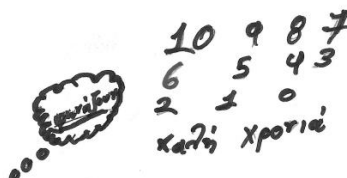 10 9 8 7
6 5 4 3
2 1 0
καλή χρονιά